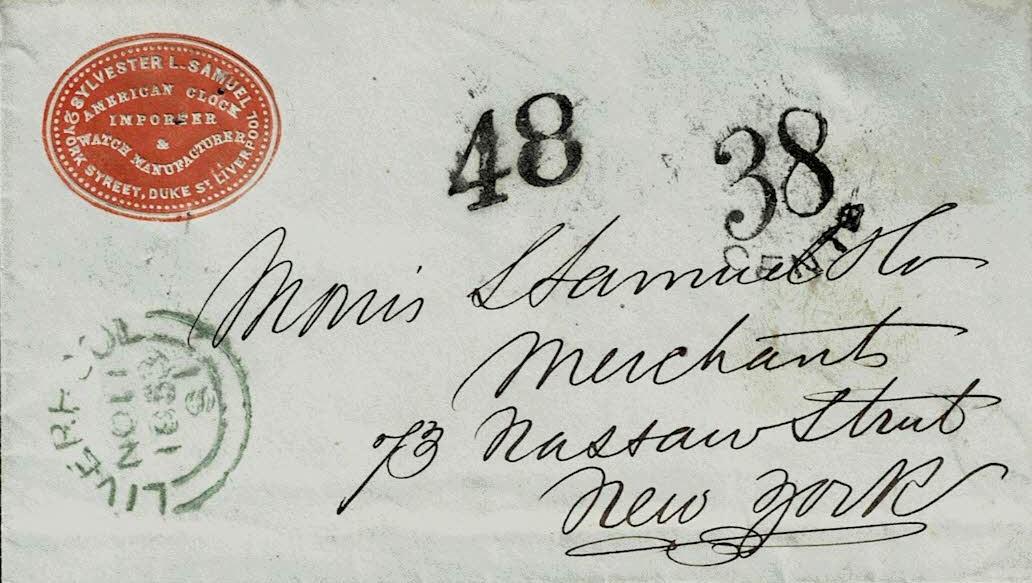 SYLVESTER L. SAMUEL
AMERICAN CLOCK
IMPORTER
&
WATCH MANUFACTURER
YORK STREET, DUKE ST. LIVERPOOL
48
38
CENTS
Morris S Samuel & Co
Merchants
73 Nassau Street
New York
LIVERPOOL
NO 11
1853